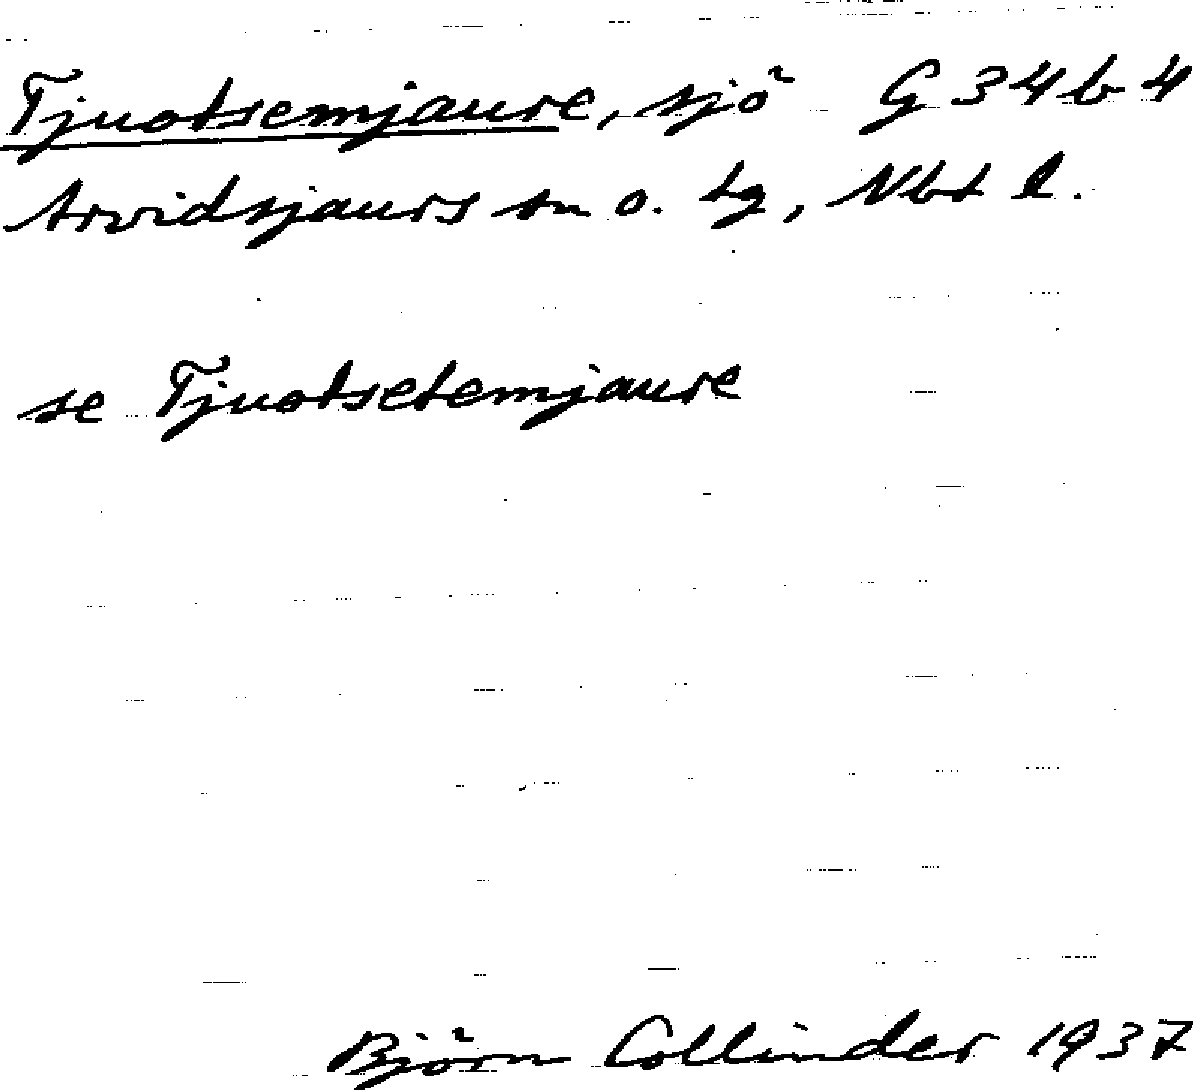 Tjuotsemjaure, sjö G 34 b 4
Arvidsjaurs sn o. tg, Nbt l.
se Tjuotsetemjaure
Björn Collinder 1937